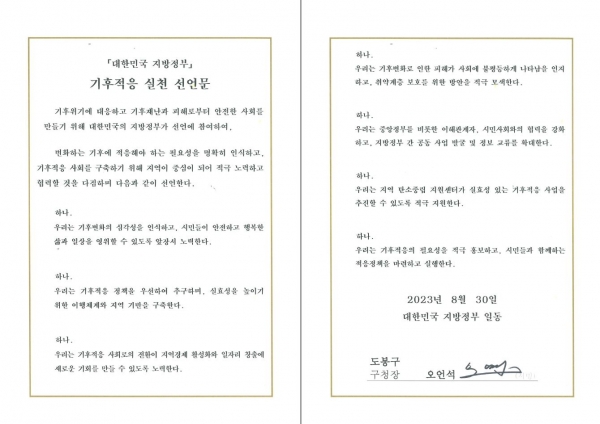 「대한민국 지방정부」
기후적응 실천 선언문
기후위기에 대응하고 기후재난과 피해로부터 안전한 사회를
만들기 위해 대한민국의 지방정부가 선언에 참여하여,
변화하는 기후에 적응해야 하는 필요성을 명확히 인식하고,
기후적응 사회를 구축하기 위해 지역이 중심이 되어 적극 노력하고
협력할 것을 다짐하며 다음과 같이 선언한다.
하나.
우리는 기후변화의 심각성을 인식하고, 시민들이 안전하고 행복한
삶과 일상을 영위할 수 있도록 앞장서 노력한다.
하나.
우리는 기후적응 정책을 우선하여 추구하며, 실효성을 높이기
위한 이행체계와 지역 기반을 구축한다.
하나.
우리는 기후적응 사회로의 전환이 지역경제 활성화와 일자리 창출에
새로운 기회를 만들 수 있도록 노력한다.
하나.
우리는 기후변화로 인한 피해가 사회에 불평등하게 나타남을 인지
하고, 취약계층 보호를 위한 방안을 적극 모색한다.
하나.
우리는 중앙정부를 비롯한 이해관계자, 시민사회와의 협력을 강화
하고, 지방정부 간 공동 사업 발굴 및 정보 교류를 확대한다.
하나.
우리는 지역 탄소중립 지원센터가 실효성 있는 기후적응 사업을
추진할 수 있도록 적극 지원한다.
하나.
우리는 기후적응의 필요성을 적극 홍보하고, 시민들과 함께하는
적응정책을 마련하고 실행한다.
2023년 8월 30일
대한민국 지방정부 일동
도봉구
구청장 오언석